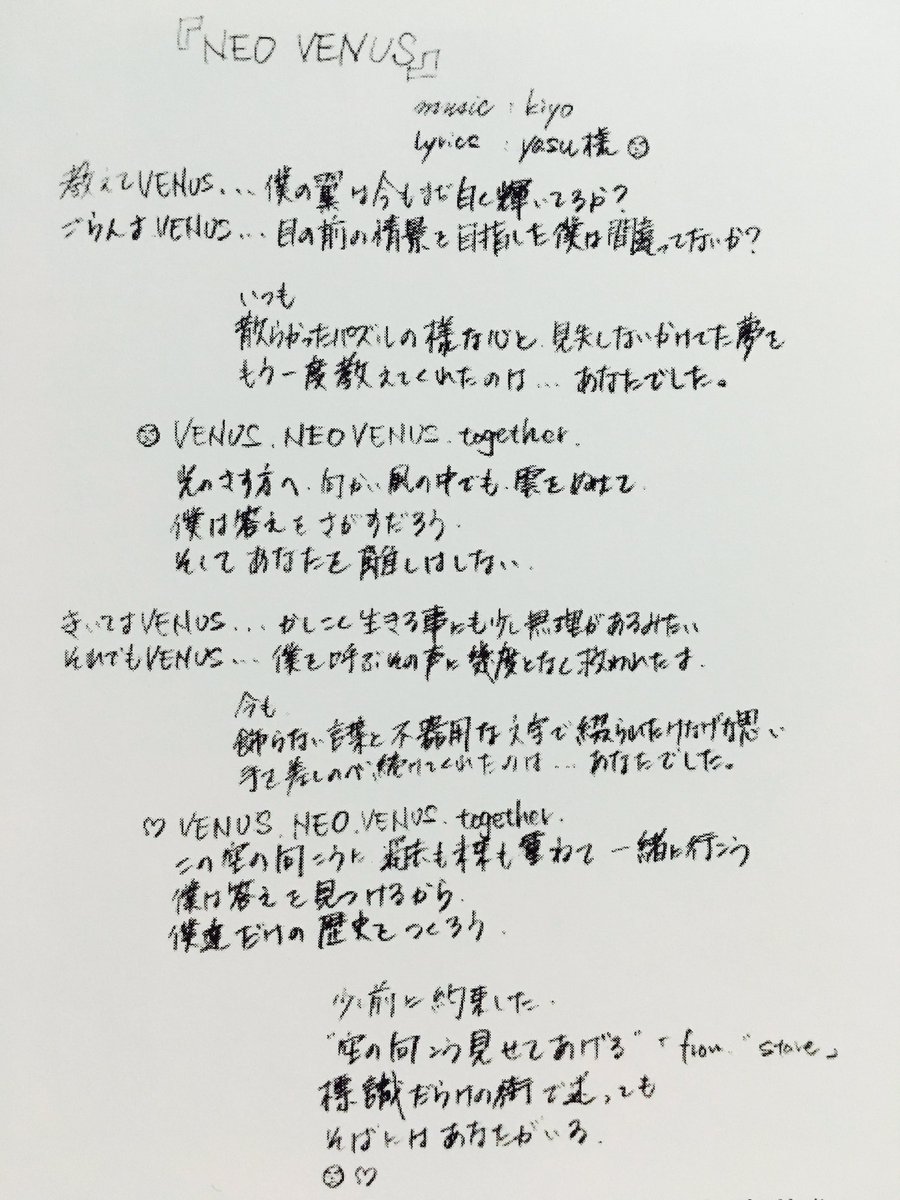 『NEO VENUS』
music : kiyo
lyrics : yasu様
教えてVENUS... 僕の翼は今もまだ白く輝いてるか?
ごらんよVENUS... 目の前の情景を目指した僕は間違ってないか?
いつも
散らかったパズルの様な心と、見失しないかけてた夢を
もう一度教えてくれたのは... あなたでした。
VENUS. NEO VENUS. together.
光のさす方へ、向かい風の中でも、雲をぬけて
僕は答えをさがすだろう.
そして あなたを離しはしない.
きいてよVENUS... かしこく生きる事にも少し無理があるみたい
それでもVENUS... 僕を呼ぶその声に幾度となく救われたよ.
今も
飾らない言葉と不器用な文字で綴られたけなげな思い
手を差しのべ続けてくれたのは... あなたでした。
♡ VENUS. NEO. VENUS. together.
この空の向こうに 過去も未来も重ねて 一緒に行こう
僕は答えを見つけるから.
僕達だけの歴史をつくろう.
少し前に約束した.
"空の向こう見せてあげる" 「from "store」
標識だらけの街で迷っても
そばにはあなたがいる.
♡